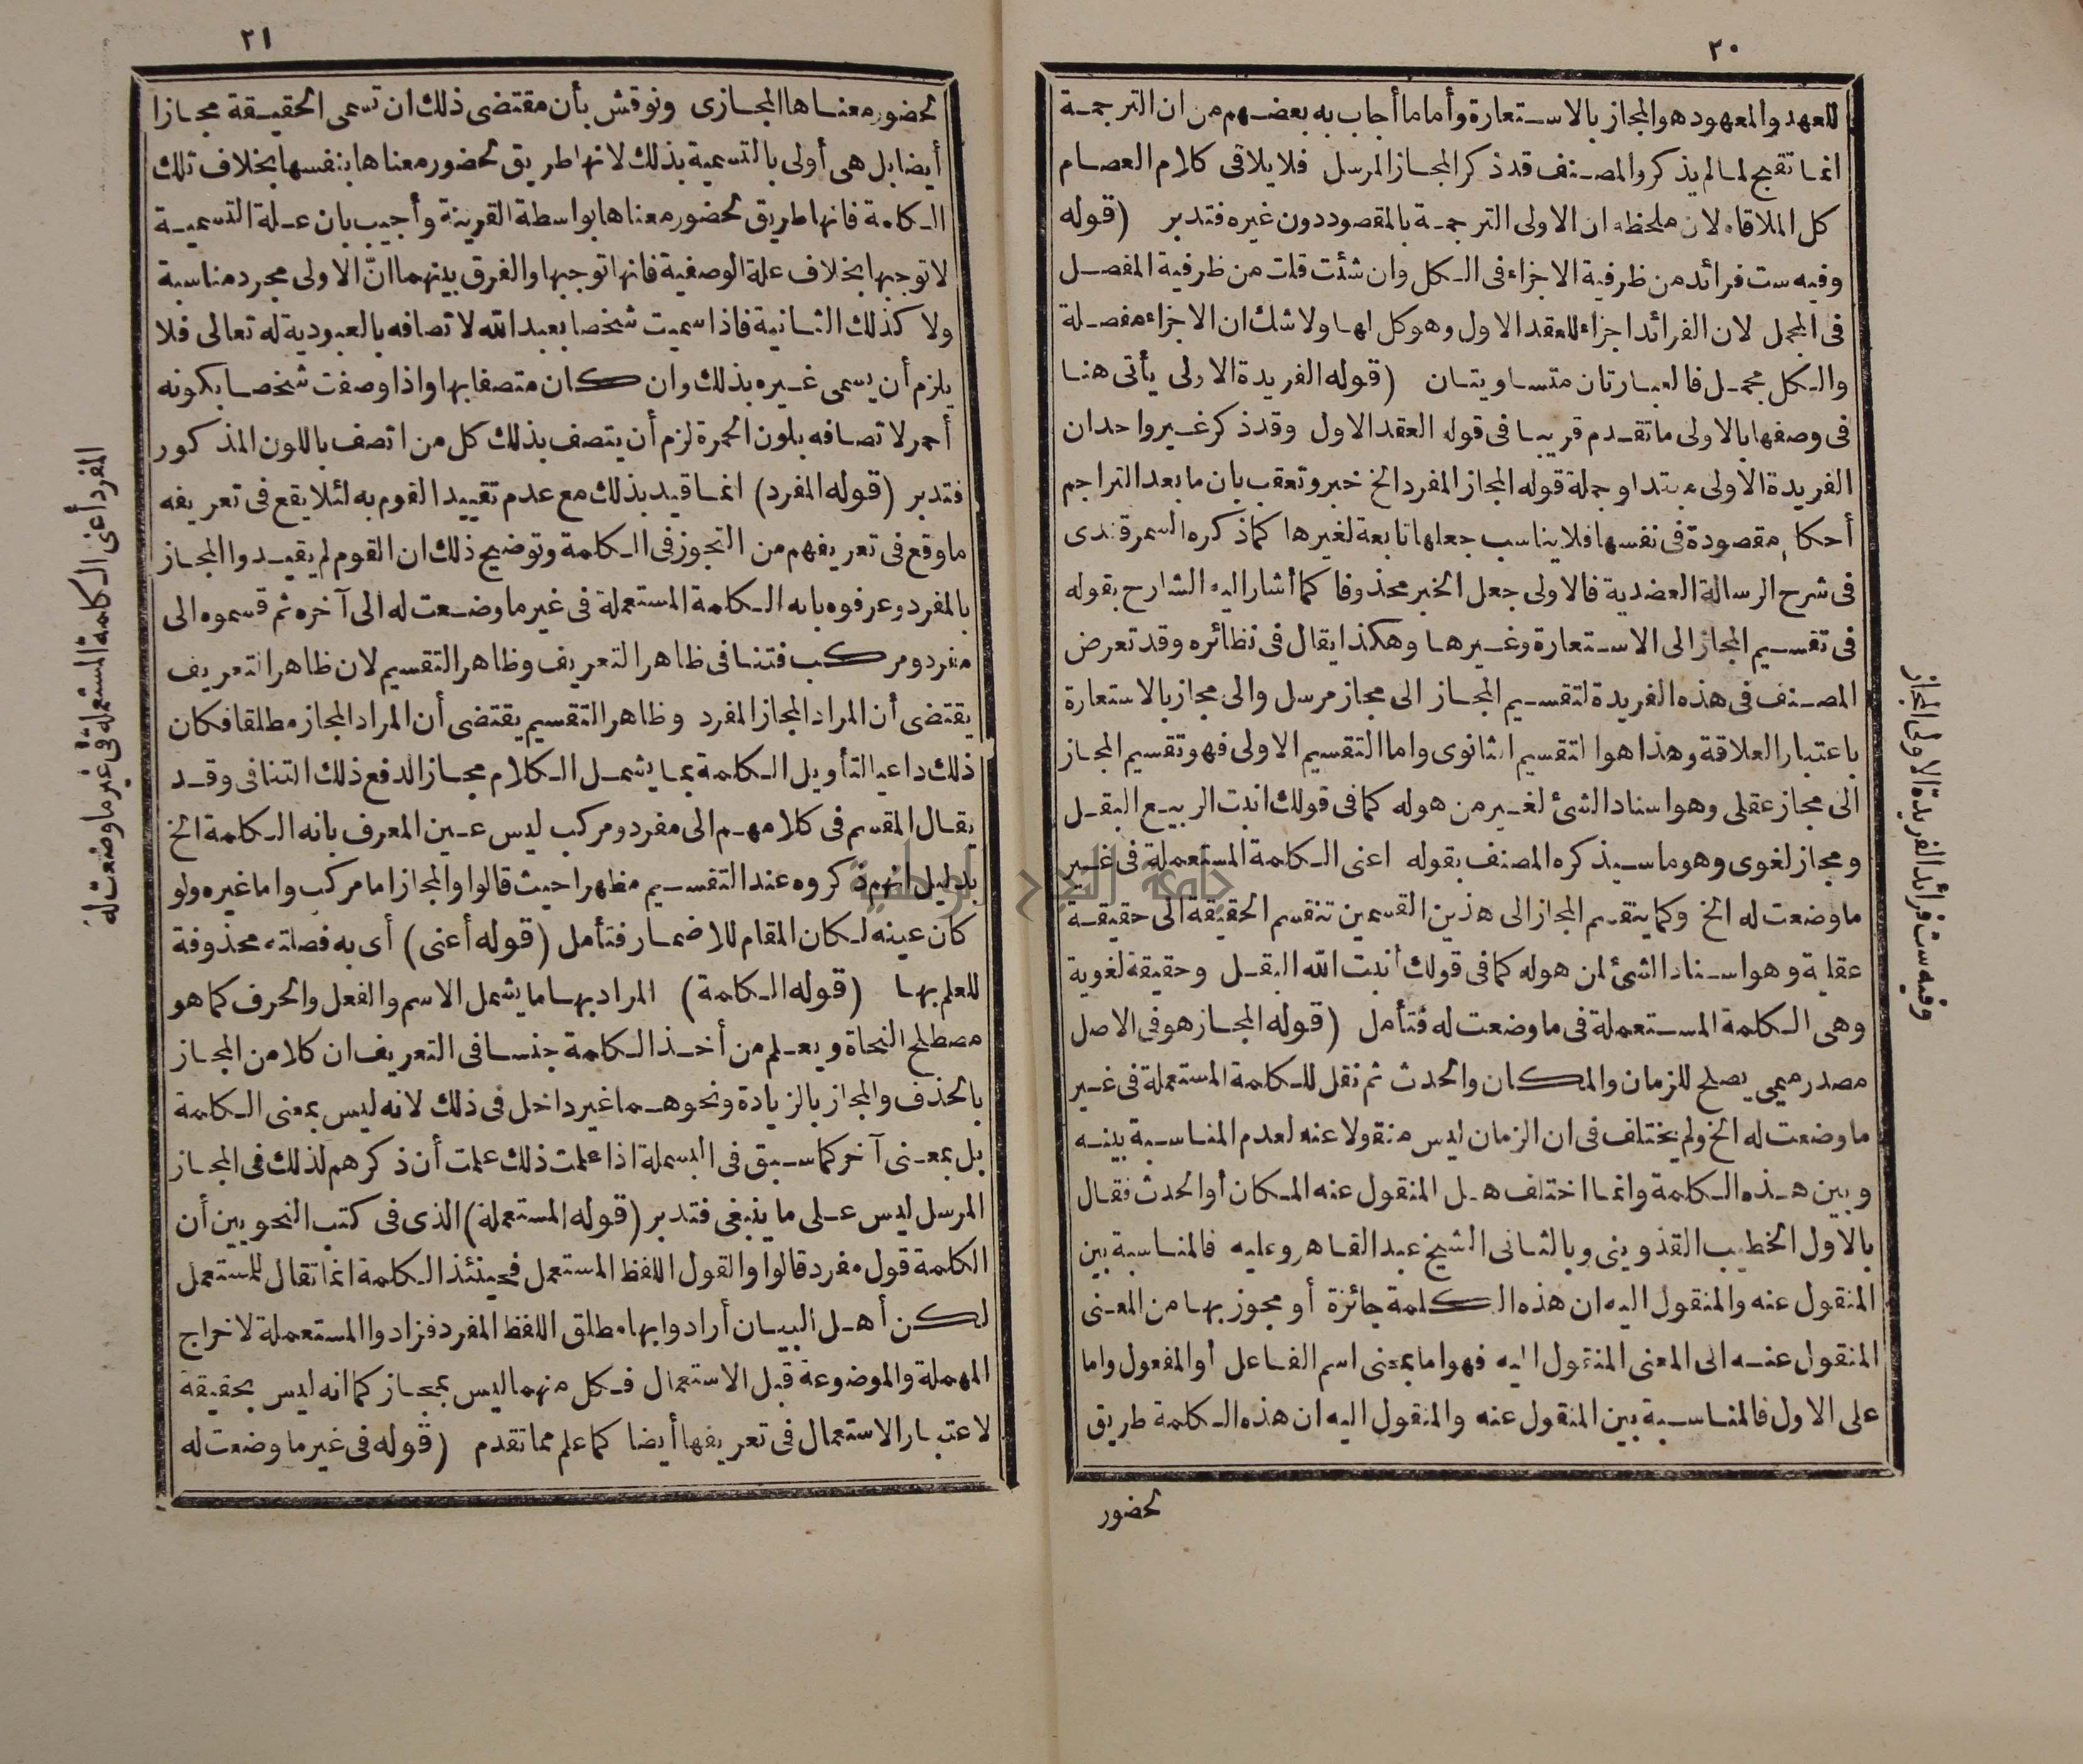 ٢٠
للعهد والمعهود هو المجاز بالاستعارة وأما ما أجاب به بعضهم من ان الترجمة
انما تقبح لما لم يذكر والمصنف قد ذكر المجاز المرسل فلا يلاقى كلام العصام
كل الملاقاة لان ملحظه ان الاولى الترجمة بالمقصود دون غيره فتدبر (قوله
وفيه ست فرائد من ظرفية الاجزاء فى الكل وان شئت قلت من ظرفية المفصل
فى المجمل لان الفرائد اجزاء للعقد الاول وهو كل لها ولا شك ان الاجزاء مفصلة
والكل مجمل فالعبارتان متساويتان (قوله الفريدة الاولى يأتى هنا
فى وصفها بالاولى ما تقدم قريبا فى قوله العقد الاول وقد ذكر غير واحد ان
الفريدة الاولى مبتدا وجملة قوله المجاز المفرد الخ خبر وتعقب بان ما بعد التراجم
أحكام مقصودة فى نفسها فلا يناسب جعلها تابعة لغيرها كما ذكره السمرقندى
فى شرح الرسالة العضدية فالاولى جعل الخبر محذوفا كما أشار اليه الشارح بقوله
فى تقسيم المجاز الى الاستعارة وغيرها وهكذا يقال فى نظائره وقد تعرض
المصنف فى هذه الفريدة لتقسيم المجاز الى مجاز مرسل والى مجاز بالاستعارة
باعتبار العلاقة وهذا هو التقسيم الثانوى واما التقسيم الاولى فهو تقسيم المجاز
الى مجاز عقلى وهو اسناد الشئ لغير من هوله كما فى قولك انبت الربيع البقل
ومجاز لغوى وهو ما سيذكره المصنف بقوله اعنى الكلمة المستعملة فى غير
ما وضعت له الخ وكما ينقسم المجاز الى هذين القسمين تنقسم الحقيقة الى حقيقة
عقلية وهو اسناد الشئ لمن هوله كما فى قولك أنبت الله البقل وحقيقة لغوية
وهى الكلمة المستعملة فى ما وضعت له فتأمل (قوله المجاز هو فى الاصل
مصدر ميمى يصلح للزمان والمكان والحدث ثم نقل للكلمة المستعملة فى غير
ما وضعت له الخ ولم يختلف فى ان الزمان ليس منقولا عنه لعدم المناسبة بينه
وبين هذه الكلمة وانما اختلف هل المنقول عنه المكان أو الحدث فقال
بالاول الخطيب القذوينى وبالثانى الشيخ عبد القاهر وعليه فالمناسبة بين
المنقول عنه والمنقول اليه ان هذه الكلمة جائزة أو مجوز بها من المعنى
المنقول عنه الى المعنى المنقول اليه فهو اما بمعنى اسم الفاعل أو المفعول واما
على الاول فالمناسبة بين المنقول عنه والمنقول اليه ان هذه الكلمة طريق
لحضور
وفيه ست فرائد الفريدة الاولى المجاز
٢١
لحضور معناها المجازى ونوقش بأن مقتضى ذلك ان تسمى الحقيقة مجازا
أيضا بل هى أولى بالتسمية بذلك لانها طريق لحضور معناها بنفسها بخلاف تلك
الكلمة فانها طريق لحضور معناها بواسطة القرينة وأجيب بان علة التسمية
لا توجبها بخلاف علة الوصفية فانها توجبها والفرق بينهما انّ الاولى مجرد مناسبة
ولا كذلك الثانية فاذا سميت شخصا بعبد الله لاتصافه بالعبودية له تعالى فلا
يلزم أن يسمى غيره بذلك وان كان متصفا بها واذا وصفت شخصا بكونه
أحمر لاتصافه بلون الحمرة لزم أن يتصف بذلك كل من اتصف باللون المذكور
فتدبر (قوله المفرد) انما قيد بذلك مع عدم تقييد القوم به لئلا يقع فى تعريفه
ما وقع فى تعريفهم من التجوز فى الكلمة وتوضيح ذلك ان القوم لم يقيدوا المجاز
بالمفرد وعرفوه بانه الكلمة المستعملة فى غير ما وضعت له الى آخره ثم قسموه الى
مفرد ومركب فتنافى ظاهر التعريف وظاهر التقسيم لان ظاهر التعريف
يقتضى أن المراد المجاز المفرد وظاهر التقسيم يقتضى أن المراد المجاز مطلقا فكان
ذلك داعيا لتأويل الكلمة بما يشمل الكلام مجازا لدفع ذلك التنافى وقد
يقال المقسم فى كلامهم الى مفرد ومركب ليس عين المعرف بانه الكلمة الخ
بدليل انهم ذكروه عند التقسيم مظهرا حيث قالوا والمجاز اما مركب واما غيره ولو
كان عينه لكان المقام للاضمار فتأمل (قوله أعنى) أى به فصلته محذوفة
للعلم بها (قوله الكلمة) المراد بها ما يشمل الاسم والفعل والحرف كما هو
مصطلح النحاة ويعلم من أخذ الكلمة جنسا فى التعريف ان كلا من المجاز
بالحذف والمجاز بالزيادة ونحوهما غير داخل فى ذلك لانه ليس بمعنى الكلمة
بل بمعنى آخر كما سبق فى البسملة اذا علمت ذلك علمت أن ذكرهم لذلك فى المجاز
المرسل ليس على ما ينبغى فتدبر (قوله المستعملة) الذى فى كتب النحويين أن
الكلمة قول مفرد قالوا والقول اللفظ المستعمل فحينئذ الكلمة انما تقال للمستعمل
لكن أهل البيان أرادوا بها مطلق اللفظ المفرد فزادوا المستعملة لاخراج
المهملة والموضوعة قبل الاستعمال فكل منهما ليس بمجاز كما انه ليس بحقيقة
لاعتبار الاستعمال فى تعريفها أيضا كما علم مما تقدم (قوله فى غير ما وضعت له
المفرد أعنى الكلمة المستعملة فى غير ما وضعت له
جامعة النجاح الوطنية